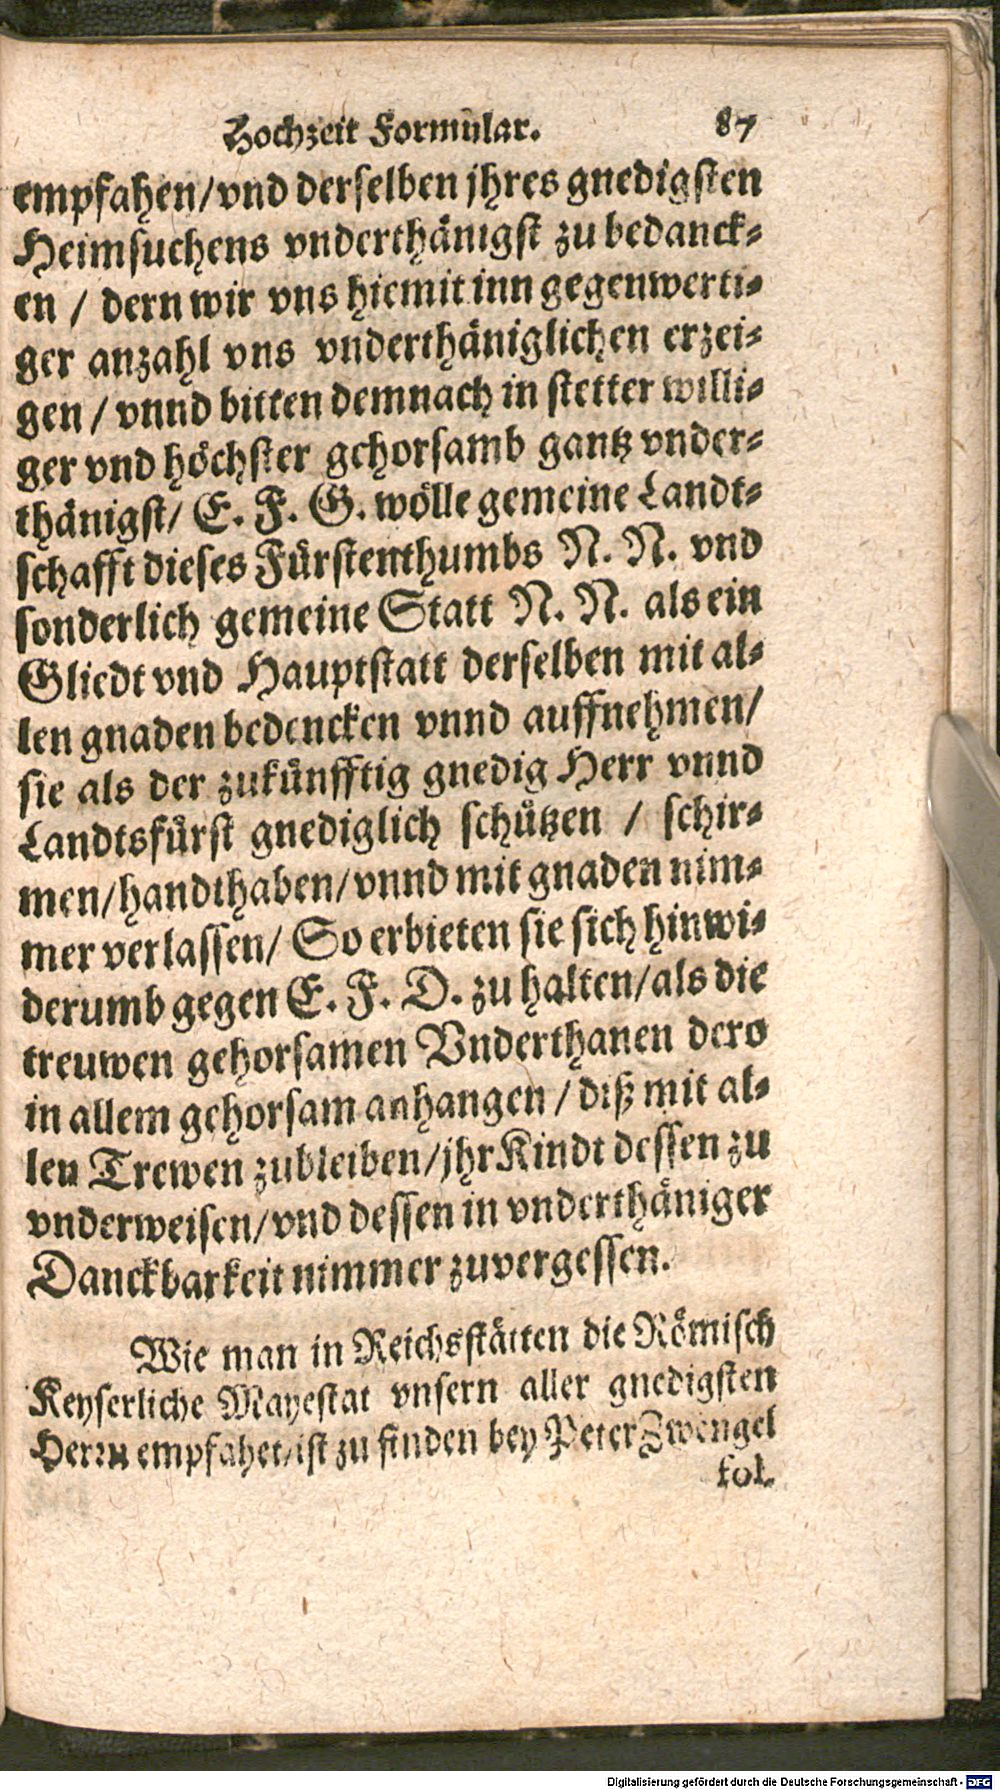 Hochzeit Formular. 87
empfahen/vnd derselben jhres gnedigsten
Heimsuchens vnderthänigst zu bedanck-
en / dern wir vns hiemit inn gegenwerti-
ger anzahl vns vnderthäniglichen erzei-
gen / vnnd bitten demnach in stetter willi-
ger vnd höchster gehorsamb gantz vnder-
thänigst/ E. F. G. wölle gemeine Landt-
schafft dieses Fürstenthumbs N. N. vnd
sonderlich gemeine Statt N. N. als ein
Gliedt vnd Hauptstatt derselben mit al-
len gnaden bedencken vnnd auffnehmen/
sie als der zukünfftig gnedig Herr vnnd
Landtsfürst gnediglich schützen / schir-
men/handthaben/vnnd mit gnaden nim-
mer verlassen/ So erbieten sie sich hinwi-
derumb gegen E. F. D. zu halten/als die
treuwen gehorsamen Vnderthanen dero
in allem gehorsam anhangen / diß mit al-
len Trewen zubleiben/jhr Kindt dessen zu
vnderweisen/vnd dessen in vnderthäniger
Danckbarkeit nimmer zuvergessen.
Wie man in Reichsstätten die Römisch
Keyserliche Mayestat vnsern aller gnedigsten
Herrn empfahet/ist zu finden bey Peter Zwengel
fol.
Digitalisierung gefördert durch die Deutsche Forschungsgemeinschaft - DFG